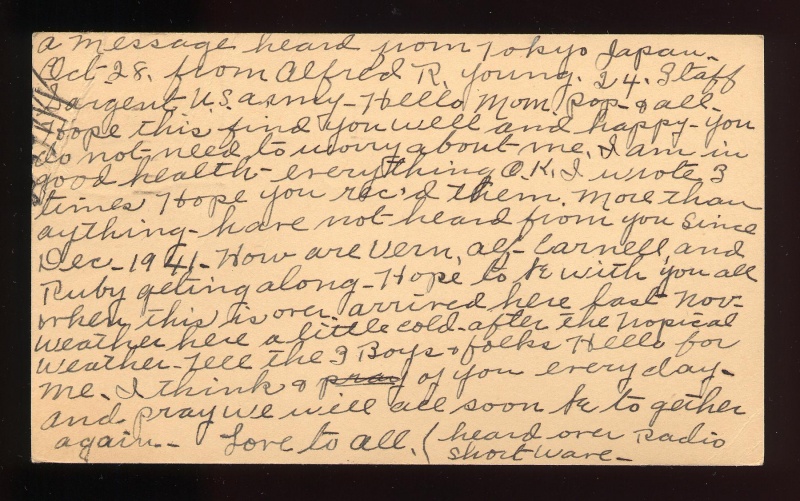 a message heard from Tokyo Japan-
Oct-28. from Alfred R. young. 24. Staff
Sargent U.S. army-Hello Mom, Pop-& all-
Hope this find you well and happy-you
do not need to worry about me. I am in
good health-everything O.K. I wrote 3
times Hope you rec'd them. More than
aything-have not heard from you since
Dec-1941-How are Vern, Alf-Carnell, and
Ruby geting along-Hope to be with you all
when this is over. arrived here last Nov-
weather here a little cold-after the Tropical
weather-Tell the 3 Boys & folks Hello for
me. I think & pray of you every day-
and pray we will all soon be to gether
again-- Love to all. (heard over Radio
short wave-